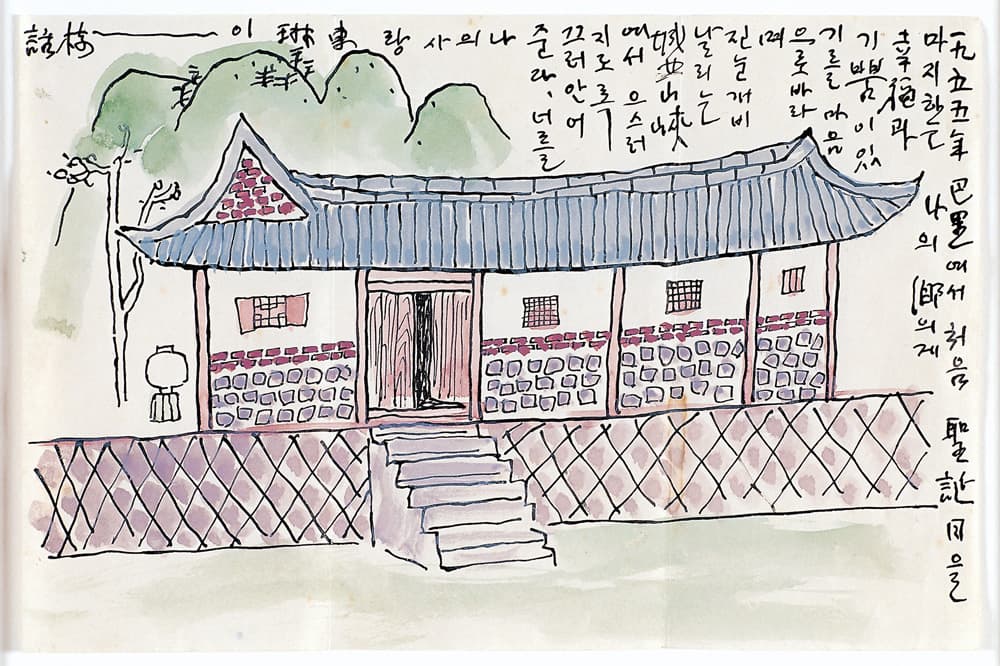 一九五五年 巴里에서 처음 聖誕日을
마지한는 나의 鄕의게
幸福과
기쁨이 있
기를 마음
으롯바라
며
진눈개비
날리는
城北山峽
에서 으스러
지도록
끄러안어
준다. 너를
나의사랑 東琳이 樹話